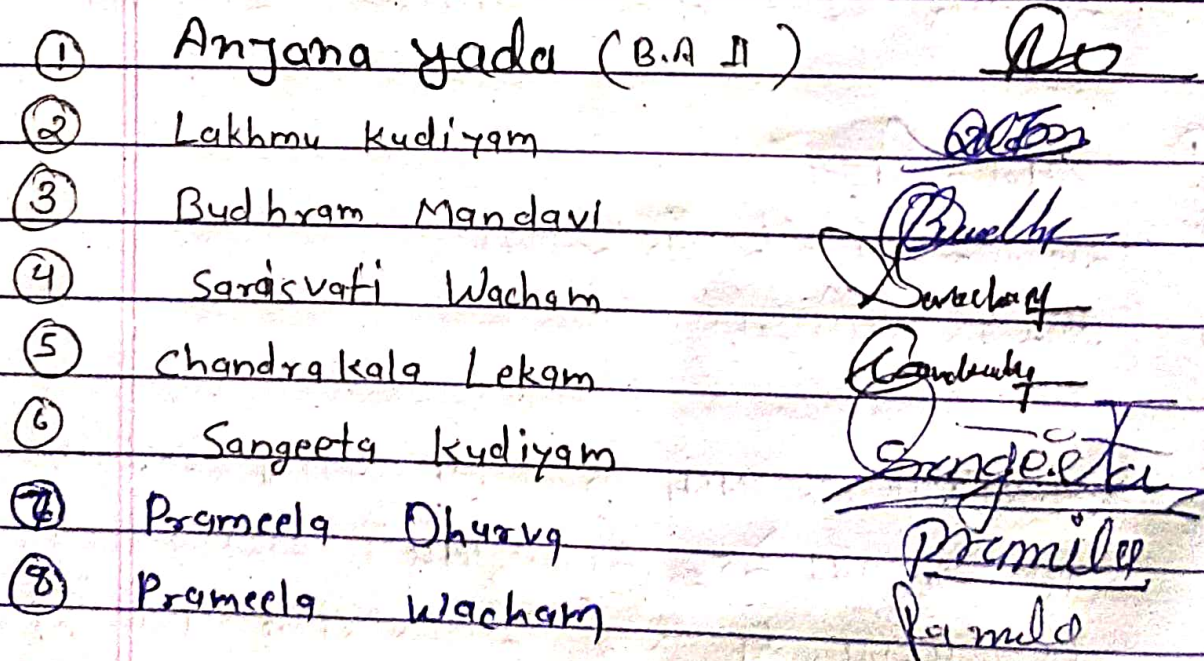 ① Anjana yada (B.A II)
② Lakhmu Kudiyam
③ Budhram Mandavi Budhr
④ Sarasvati Wacham
⑤ Chandrakala Lekam
⑥ Sangeeta Kudiyam Sangeeta
⑦ Prameela Dhurva Pramila
⑧ Prameela Wacham Pamila